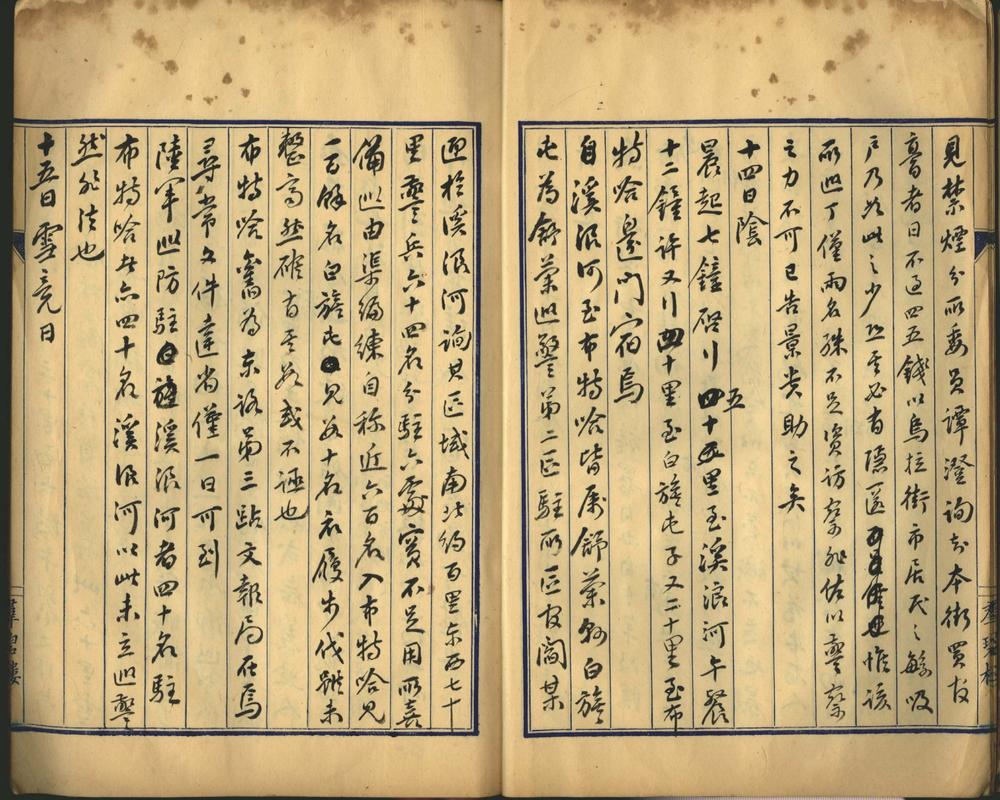 見禁煙分所委員譚澄詢知本街買度
膏者日不過四五錢以烏拉街市居民之繁吸
戶乃如此之少恐其必有隱匿也惟該
所巡丁僅兩名殊不足資訪察非佐以警察
之力不可已告景贵助之矣
十四日陰
晨起七鐘啓行四十五里至溪浪河午餐
十二鐘許又行四十里至白旗屯子又二十里至布
特哈邊門宿焉
自溪浪河至布特哈皆属舒蘭的白旗
屯為舒蘭巡警第二區駐所區官閻某
迎於溪浪河詢其區域南北約百里东西七十
里警兵六十四名分駐六處實不足用所喜
備巡由渠编練自称近六百名入布特哈見
一百餘名白旗屯見数十名衣履步伐雖未
整齊然確有其数或不誣也
布特哈舊為東路第三站文報局在焉
尋常文件達省僅一日可到
陸軍巡防駐溪浪河者四十名駐
布特哈者亦四十名溪浪河以此未立巡警
然非法也
十五日雪竟日